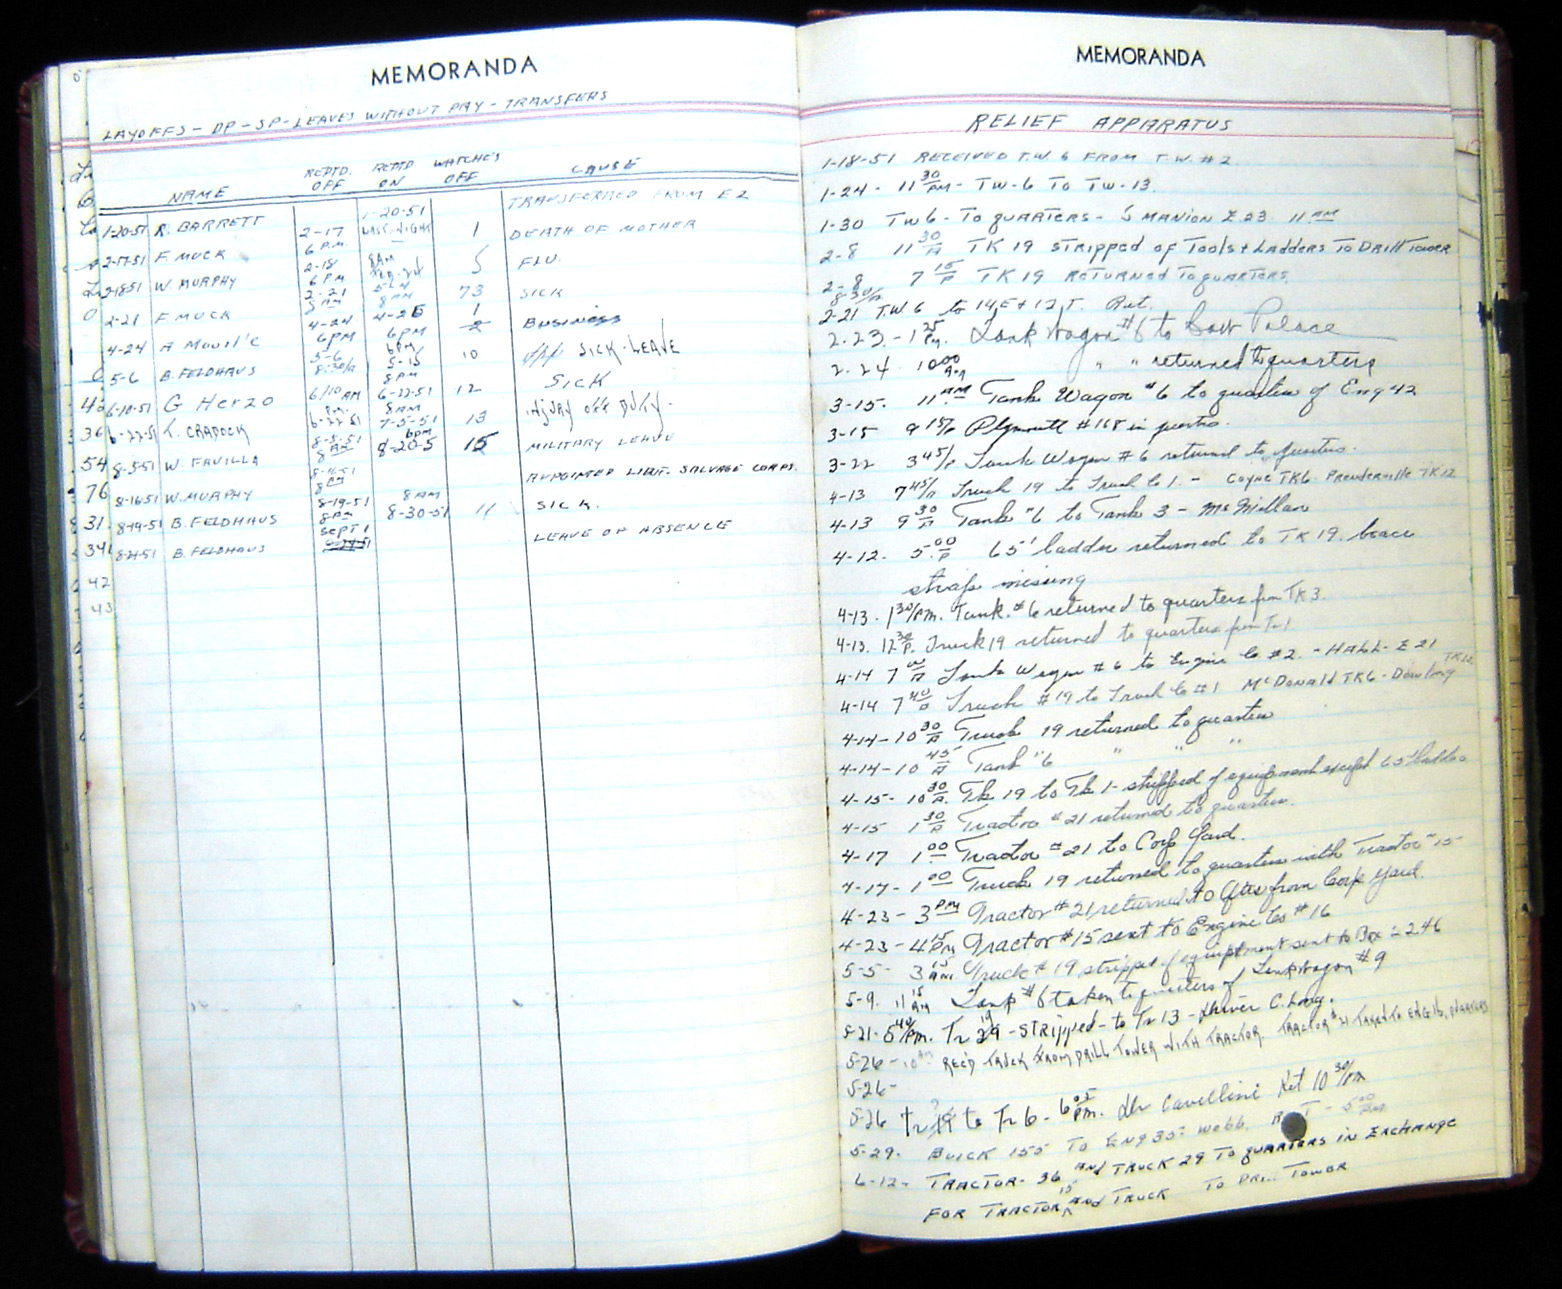 MEMORANDA
LAYOFFS - DP - SP - LEAVES WITHOUT PAY - TRANSFERS
NAME REPTD. OFF REPTD ON WATCHE'S OFF CAUSE
1-20-51 R. BARRETT 1-20-51 TRANSFERRED FROM E2
2-17-51 F. MUCK 2-17 6 P.M. 1 DEATH OF MOTHER
2-18-51 W. MURPHY 2-18 6 PM 8AM 5 FLU.
2-21 F. MUCK 2-21 8 AM 5-4 8 AM 73 SICK
4-24 A 4-24 6PM 4-26 6PM 1 BUSINESS
5-6 B. FELDHAUS 5-6 8:30/A 5-15 8PM 10 SICK-LEAVE
6-10-51 G HERZO 6/10 AM 6-22-51 8AM 12 SICK
6-22-51 T. CRADOCK 6-22-51 7-5-51 6pm 13 INJURY OFF DUTY.
8-5-51 W. FAVILLA 8-5-51 8 AM 8-20-5 15 MILITARY LEAVE
8-16-51 W. MURPHY 8-16-51 8 AM APPOINTED LIEUT. SALVAGE CORPS.
8-19-51 B. FELDHAUS 8-19-51 8 AM 8 AM 8-30-51 11 SICK.
8-31-51 B. FELDHAUS SEPT 1 LEAVE OF ABSENCE
MEMORANDA
RELIEF APPARATUS
1-18-51 RECEIVED T.W. 6 FROM T.W. #2
1-24 - 11 30 PM - TW-6 TO TW-13.
1-30 TW6 - TO QUARTERS - S MANION E.23. 11 AM
2-8 11 30 A TK 19 STRIPPED OF TOOLS + LADDERS TO DRILL TOWER
2-8 7 15 P TK 19 RETURNED TO QUARTERS.
8-30/A
2-21 T.W. 6 to 14 E + 12 T. Ret.
2-23 - 1 25 P.M. Tank Wagon #6 to Cow Palace
2-24 10 00 A.M " " returned to quarters
3-15. 11 AM Tank Wagon #6 to quarters of Eng 42
3-15 9 15/P Plymouth #118 in quarters.
3-22 3 45/P Tank Wagon #6 returned to quarters.
4-13 7 45/A Truck 19 to Truck Co 1. - Coyne TK6. Prenderville TK12
4-13 9 30 A Tank #6 to Tank 3 - McMillan
4-12. 5 00 P 65' ladder returned to TK 19. brace
straps missing
4-13. 1 30/PM. Tank #6 returned to quarters from TK 3.
4-13. 12 30 P. Truck 19 returned to quarters from Tr 1
4-14 7 00 A Tank Wagon #6 to Engine Co #2. - HALL - E 21
4-14 7 40 A Truck #19 to Truck Co #1 McDonald TK6 - Dowling TK12
4-14 - 10 30 A Truck 19 returned to quarters
4-14 - 10 45 A Tank "6 " " "
4-15 - 10 30 A. Tk 19 to Tk 1 - stripped of equipment except 65' ladder
4-15 1 30 P Tractor #21 returned to quarters.
4-17 1 00 Tractor #21 to Corp Yard.
4-17 - 1 00 Truck 19 returned to quarters with Tractor "15
4-23 - 3 PM Tractor #21 returned to Qtrs from Corp Yard.
4-23 - 4 15 PM Tractor #15 sent to Engine Co #16
5-5 - 3 15 AM. Truck #19 stripped of equiptment sent to Box 2246
5-9. 11 15 AM Tank #6 taken to quarters of Tank Wagon #9
5-21 - 5 40/PM. Tr 19 - STRIPPED - to Tr 13 - Driver C. Long.
5-26 - 10 AM REC'D TRUCK FROM DRILL TOWER WITH TRACTOR. TRACTOR #21 TAKEN TO ENG 16, QUARTERS
5-26 -
5-26 Tr to Tr 6 - 6 05 PM. Dr Cavellini Ret 10 30/PM
5-29. BUICK 155 TO ENG 35 - WEBB. 5 00 PM
6-12 - TRACTOR - 36 AND TRUCK 29 TO QUARTERS IN EXCHANGE
FOR TRACTOR 15 AND TRUCK TO DRILL TOWER